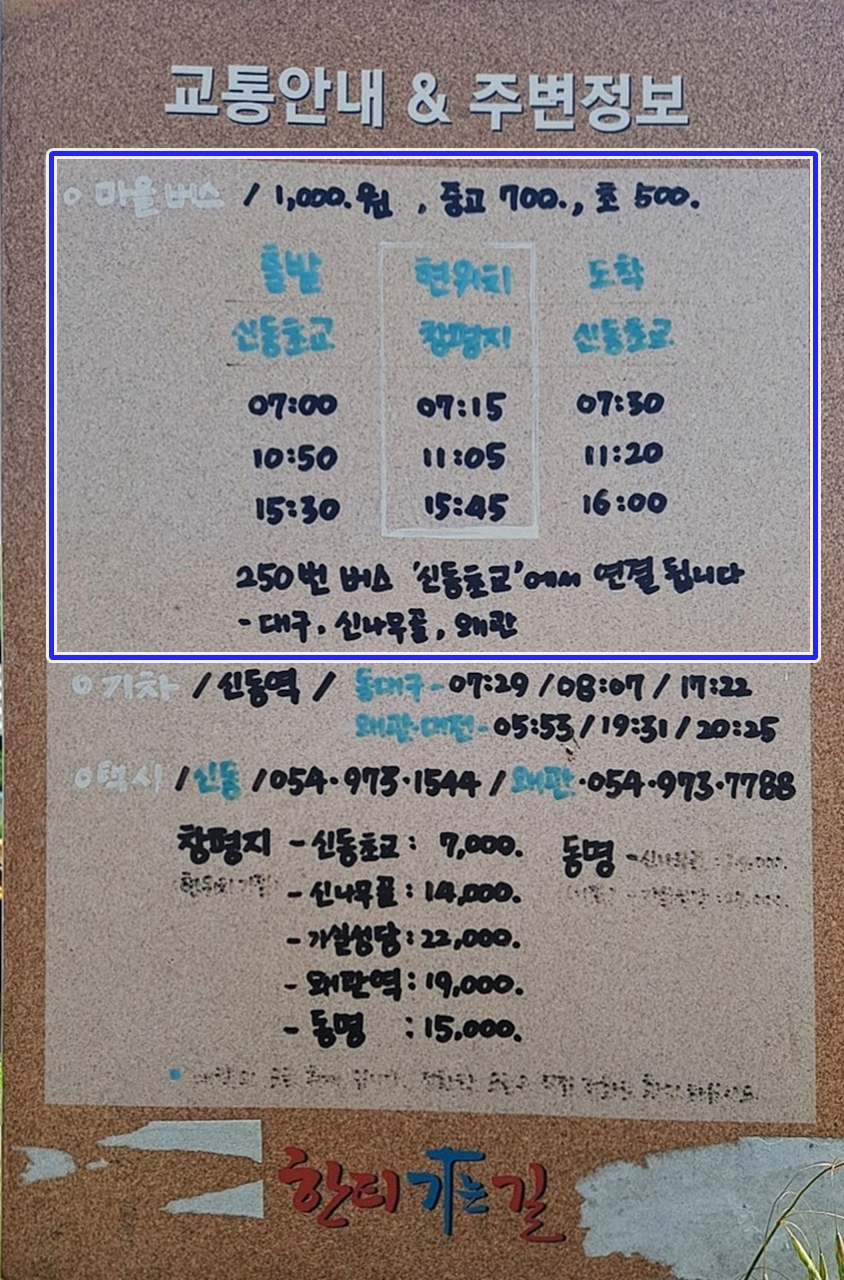 교통안내 & 주변정보
○ 마을버스 / 1,000.원 , 중고 700., 초 500.
출발 현위치 도착
신동초교 창평지 신동초교
07:00 07:15 07:30
10:50 11:05 11:20
15:30 15:45 16:00
250번 버스 '신동초교'에서 연결됩니다
- 대구, 신나무골, 왜관
○ 기차 / 신동역 / 동대구-07:29 / 08:07 / 17:22
왜관·대전-05:53 / 19:31 / 20:25
○택시 / 신동 / 054·973·1544 / 왜관·054·973·7788
창평지 - 신동초교 : 7,000. 동명 -신나무골
(현위치기점) - 신나무골 : 14,000.
- 가실성당 : 22,000.
- 왜관역 : 19,000.
- 동명 : 15,000.
한티가는길